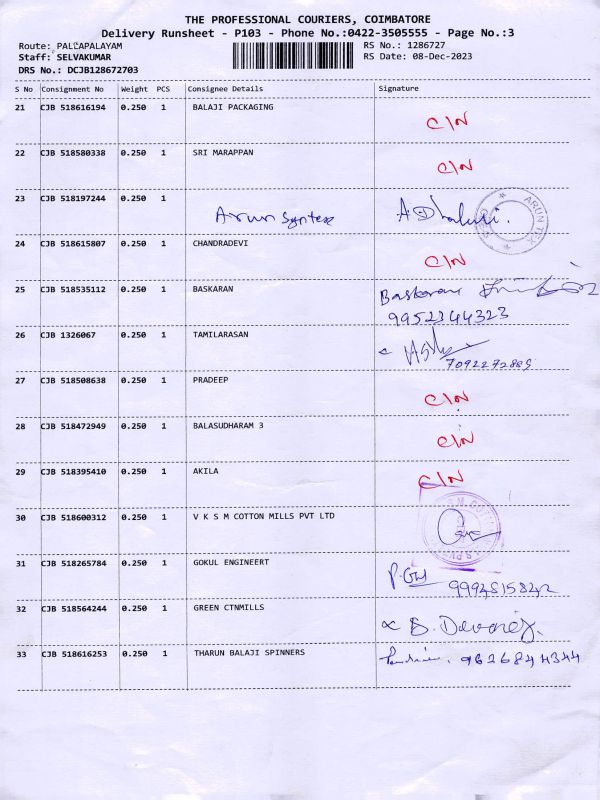 THE PROFESSIONAL COURIERS, COIMBATORE
Delivery Runsheet - P103 - Phone No.:0422-3505555 - Page No.:3
Route: PALLAPALAYAM RS No.: 1286727
Staff: SELVAKUMAR RS Date: 08-Dec-2023
DRS No.: DCJB128672703
S No Consignment No Weight PCS Consignee Details Signature
21 CJB 518616194 0.250 1 BALAJI PACKAGING C/N
22 CJB 518580338 0.250 1 SRI MARAPPAN C/N
23 CJB 518197244 0.250 1
Arun Syntex ARUN TEX
24 CJB 518615807 0.250 1 CHANDRADEVI C/N
25 CJB 518535112 0.250 1 BASKARAN Baskaran
9952344323
26 CJB 1326067 0.250 1 TAMILARASAN
7092272885
27 CJB 518508638 0.250 1 PRADEEP C/N
28 CJB 518472949 0.250 1 BALASUDHARAM 3 C/N
29 CJB 518395410 0.250 1 AKILA C/N
30 CJB 518600312 0.250 1 V K S M COTTON MILLS PVT LTD
31 CJB 518265784 0.250 1 GOKUL ENGINEERT
32 CJB 518564244 0.250 1 GREEN CTNMILLS
33 CJB 518616253 0.250 1 THARUN BALAJI SPINNERS 9626844344